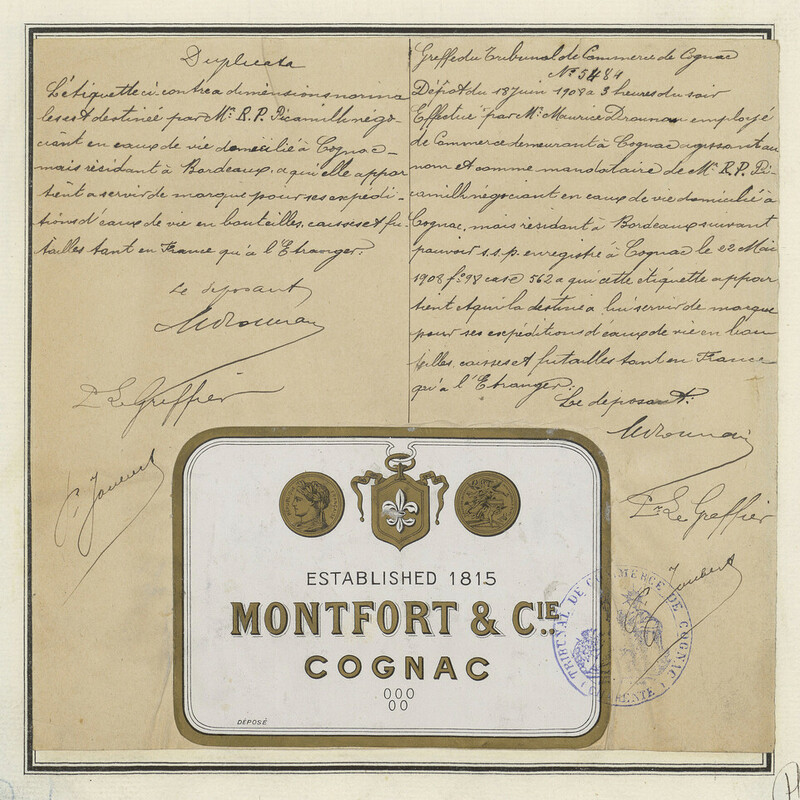 Duplicata
L'étiquette ci contre a dimensions nomina
les est destinée par Mr. R. P. Picamilh négo-
ciant en eaux de vie domicilié à Cognac
mais résidant à Bordeaux, a qui elle appar
tient a servir de marque pour ses expédi-
tions d'eaux de vie en bouteilles, caisses et fu
tailles tant en France qu'à l'Etranger.
Le déposant
Pr Le Greffier
Greffe du Tribunal de Commerce de Cognac
No 5484
Dépôt du 18 juin 1908 a 3 heures du soir
Effectué par Mr. Maurice Drounau employé
de Commerce demeurant à Cognac agissant au
nom et comme mandataire de Mr. R. P. Pi-
camilh négociant en eaux de vie domicilié à
Cognac, mais résidant à Bordeaux suivant
pouvoir s.s.p. enregistré à Cognac le 22 Mai
1908 fo 98 case 562 a qui cette étiquette appar
tient et qui la destine a lui servir de marque
pour ses expéditions d'eaux de vie en bou
teilles, caisses et futailles tant en France
qu'à l'Etranger.
Le déposant.
Pr Le Greffier
Joubert
ESTABLISHED 1815
MONTFORT & CIE.
COGNAC
OOO
OO
DÉPOSÉ
TRIBUNAL DE COMMERCE DE COGNAC
CHARENTE